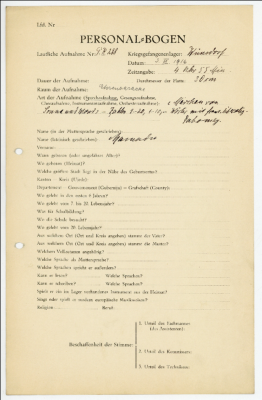 Lfd. Nr
PERSONAL-BOGEN
Lautliche Aufnahme Nr.: Kriegsgefangenenlager: Wünsdorf
Datum:
Zeitangabe: 4 Uhr 55 Min
Dauer der Aufnahme: Durchmesser der Platte: 27 cm
Raum der Aufnahme:
Art der Aufnahme (Sprechaufnahme, Gesangsaufnahme, Choraufnahme, Instrumentenaufnahme, Orchesteraufnahme): Märchen von
Name (in der Muttersprache geschrieben):
Name (lateinisch geschrieben):
Vorname:
Wann geboren (oder ungefähres Alter)?
Wo geboren (Heimat)?
Welche größere Stadt liegt in der Nähe des Geburtsortes?
Kanton — Kreis (Ujedz):
Departement — Gouvernement (Gubernija) — Grafschaft (County):
Wo gelebt in den ersten 6 Jahren?
Wo gelebt vom 7. bis 20. Lebensjahr?
Was für Schulbildung?
Wo die Schule besucht?
Wo gelebt vom 20. Lebensjahr?
Aus welchem Ort (Ort und Kreis angeben) stammt der Vater?
Aus welchem Ort (Ort und Kreis angeben) stammt die Mutter?
Welchem Volksstamm angehörig?
Welche Sprache als Muttersprache?
Welche Sprachen spricht er außerdem?
Kann er lesen? Welche Sprachen?
Kann er schreiben? Welche Sprachen?
Spielt er ein im Lager vorhandenes Instrument aus der Heimat?
Singt oder spielt er modern europäische Musikweisen?
Religion: Beruf:
Beschaffenheit der Stimme:
1. Urteil des Fachmannes
(des Assistenten):
2. Urteil des Kommissars:
3. Urteil des Technikers: